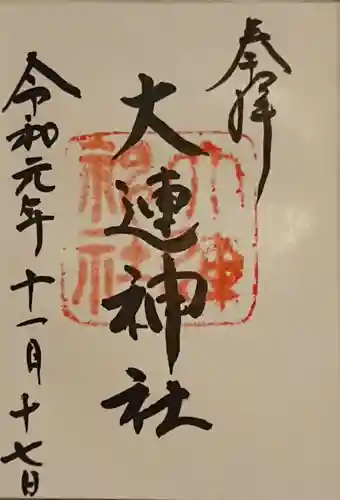 奉拝
大連神社
令和元年十一月十七日